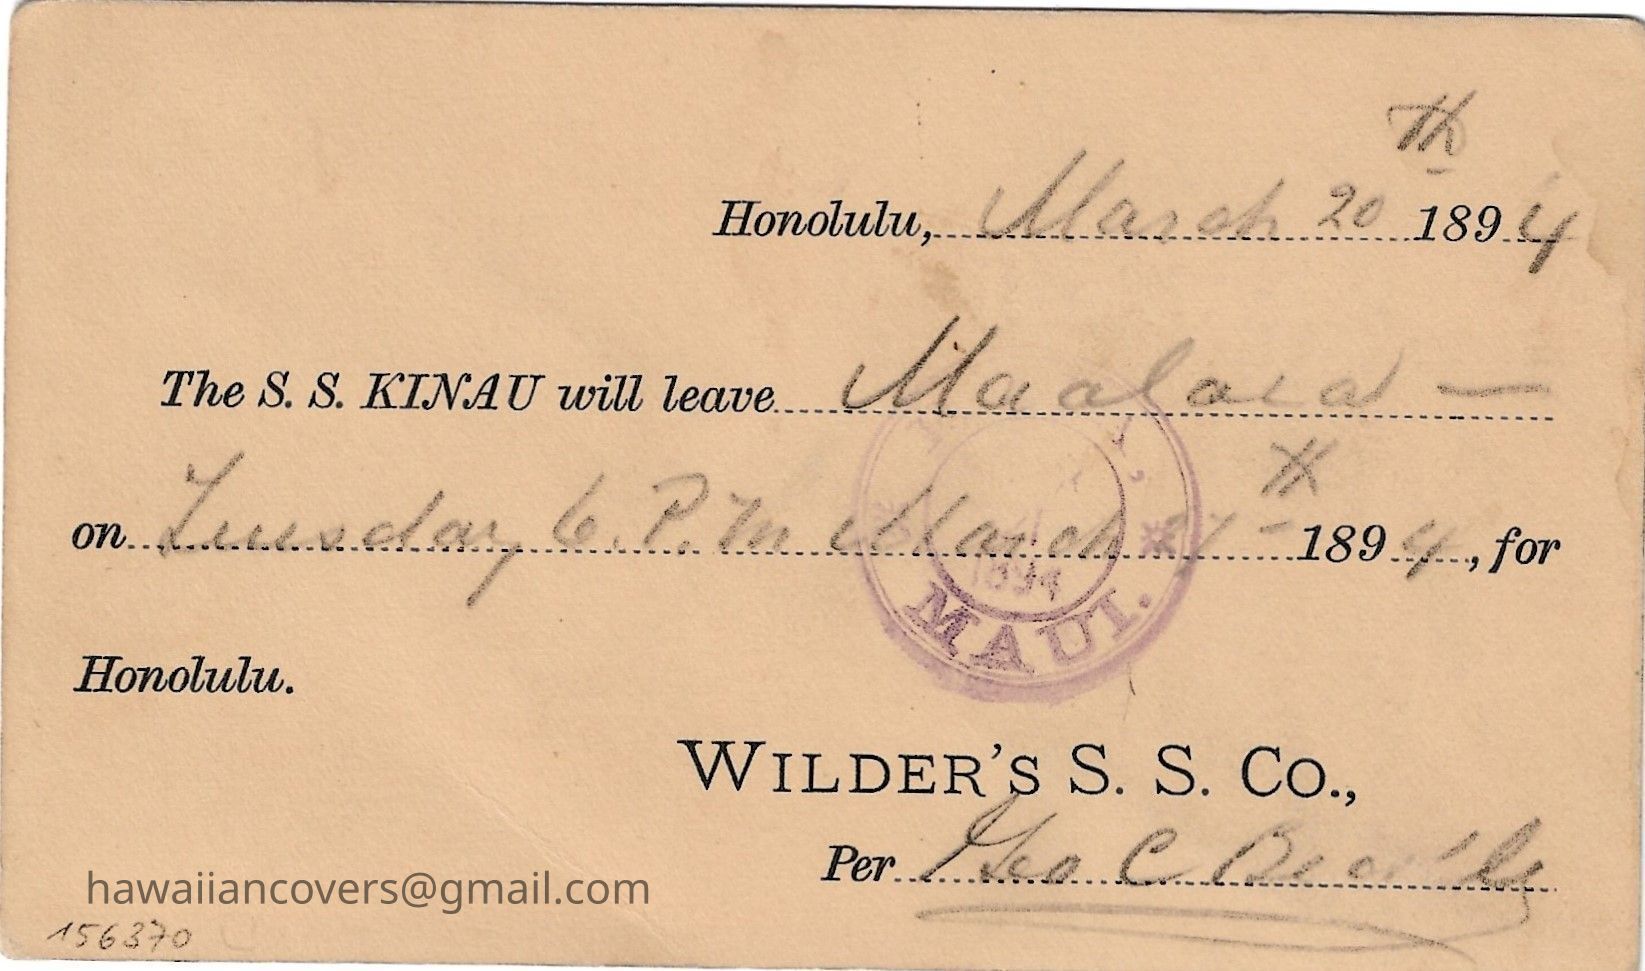 Honolulu, March 20th 1894
The S. S. KINAU will leave Maalaea —
on Tuesday 6. P. M March 27th 1894, for
Honolulu.
1894
MAUI.
WILDER'S S. S. CO.,
Per Geo C
hawaiiancovers@gmail.com
156370